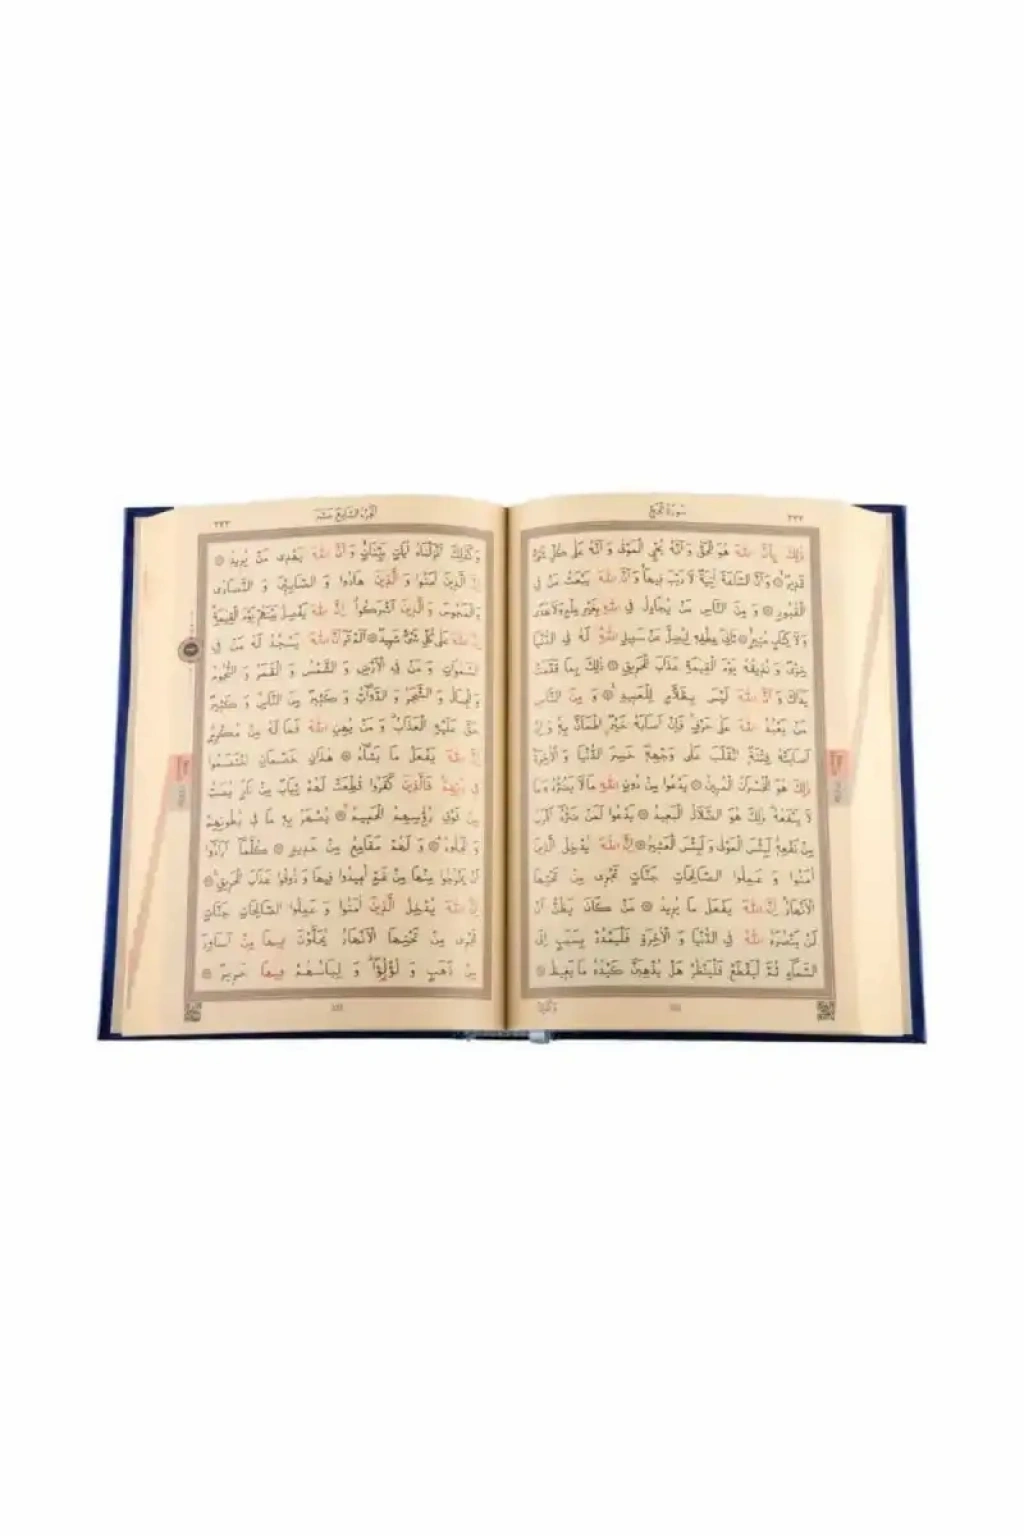 ٣٣٢
سورة الحج
ذٰلِكَ بِاَنَّ اللّٰهَ هُوَ الْحَقُّ وَاَنَّهُ يُحْيِ الْمَوْتٰى وَاَنَّهُ عَلٰى كُلِّ شَيْءٍ
قَدِيرٌ ۞ وَاَنَّ السَّاعَةَ اٰتِيَةٌ لَا رَيْبَ فِيهَا وَاَنَّ اللّٰهَ يَبْعَثُ مَنْ فِي
الْقُبُورِ ۞ وَ مِنَ النَّاسِ مَنْ يُجَادِلُ فِي اللّٰهِ بِغَيْرِ عِلْمٍ وَلَا هُدًى
وَلَا كِتَابٍ مُنِيرٍ ۞ ثَانِيَ عِطْفِهِ لِيُضِلَّ عَنْ سَبِيلِ اللّٰهِ لَهُ فِي الدُّنْيَا
خِزْيٌ وَ نُذِيقُهُ يَوْمَ الْقِيٰمَةِ عَذَابَ الْحَرِيقِ ۞ ذٰلِكَ بِمَا قَدَّمَتْ
يَدَاكَ وَ اَنَّ اللّٰهَ لَيْسَ بِظَلَّامٍ لِلْعَبِيدِ ۞ وَ مِنَ النَّاسِ
مَنْ يَعْبُدُ اللّٰهَ عَلٰى حَرْفٍ فَاِنْ اَصَابَهُ خَيْرٌ اِطْمَاَنَّ بِهِ وَ اِنْ
اَصَابَتْهُ فِتْنَةٌ اِنْقَلَبَ عَلٰى وَجْهِهِ خَسِرَ الدُّنْيَا وَ الْاٰخِرَةَ
ذٰلِكَ هُوَ الْخُسْرَانُ الْمُبِينُ ۞ يَدْعُوا مِنْ دُونِ اللّٰهِ مَا لَا يَضُرُّهُ وَ مَا
لَا يَنْفَعُهُ ذٰلِكَ هُوَ الضَّلَالُ الْبَعِيدُ ۞ يَدْعُوا لَمَنْ ضَرُّهُ اَقْرَبُ
مِنْ نَفْعِهِ لَبِئْسَ الْمَوْلٰى وَ لَبِئْسَ الْعَشِيرُ ۞ اِنَّ اللّٰهَ يُدْخِلُ الَّذِينَ
اٰمَنُوا وَ عَمِلُوا الصَّالِحَاتِ جَنَّاتٍ تَجْرِي مِنْ تَحْتِهَا
الْاَنْهَارُ اِنَّ اللّٰهَ يَفْعَلُ مَا يُرِيدُ ۞ مَنْ كَانَ يَظُنُّ اَنْ
لَنْ يَنْصُرَهُ اللّٰهُ فِي الدُّنْيَا وَ الْاٰخِرَةِ فَلْيَمْدُدْ بِسَبَبٍ اِلَى
السَّمَاءِ ثُمَّ لْيَقْطَعْ فَلْيَنْظُرْ هَلْ يُذْهِبَنَّ كَيْدُهُ مَا يَغِيظُ ۞
الجزء السابع عشر
٣٣٣
وَ كَذٰلِكَ اَنْزَلْنَاهُ اٰيَاتٍ بَيِّنَاتٍ وَ اَنَّ اللّٰهَ يَهْدِي مَنْ يُرِيدُ ۞
اِنَّ الَّذِينَ اٰمَنُوا وَ الَّذِينَ هَادُوا وَ الصَّابِئِينَ وَ النَّصَارٰى
وَ الْمَجُوسَ وَ الَّذِينَ اَشْرَكُوا اِنَّ اللّٰهَ يَفْصِلُ بَيْنَهُمْ يَوْمَ الْقِيٰمَةِ
اِنَّ اللّٰهَ عَلٰى كُلِّ شَيْءٍ شَهِيدٌ ۞ اَلَمْ تَرَ اَنَّ اللّٰهَ يَسْجُدُ لَهُ مَنْ فِي
السَّمٰوَاتِ وَ مَنْ فِي الْاَرْضِ وَ الشَّمْسُ وَ الْقَمَرُ وَ النُّجُومُ
وَ الْجِبَالُ وَ الشَّجَرُ وَ الدَّوَابُّ وَ كَثِيرٌ مِنَ النَّاسِ وَ كَثِيرٌ
حَقَّ عَلَيْهِ الْعَذَابُ وَ مَنْ يُهِنِ اللّٰهُ فَمَا لَهُ مِنْ مُكْرِمٍ
اِنَّ اللّٰهَ يَفْعَلُ مَا يَشَاءُ ۞ هٰذَانِ خَصْمَانِ اخْتَصَمُوا
فِي رَبِّهِمْ فَالَّذِينَ كَفَرُوا قُطِّعَتْ لَهُمْ ثِيَابٌ مِنْ نَارٍ يُصَبُّ
مِنْ فَوْقِ رُؤُسِهِمُ الْحَمِيمُ ۞ يُصْهَرُ بِهِ مَا فِي بُطُونِهِمْ
وَ الْجُلُودُ ۞ وَ لَهُمْ مَقَامِعُ مِنْ حَدِيدٍ ۞ كُلَّمَا اَرَادُوا
اَنْ يَخْرُجُوا مِنْهَا مِنْ غَمٍّ اُعِيدُوا فِيهَا وَ ذُوقُوا عَذَابَ الْحَرِيقِ ۞
اِنَّ اللّٰهَ يُدْخِلُ الَّذِينَ اٰمَنُوا وَ عَمِلُوا الصَّالِحَاتِ جَنَّاتٍ
تَجْرِي مِنْ تَحْتِهَا الْاَنْهَارُ يُحَلَّوْنَ فِيهَا مِنْ اَسَاوِرَ
مِنْ ذَهَبٍ وَ لُؤْلُؤًا وَ لِبَاسُهُمْ فِيهَا حَرِيرٌ ۞